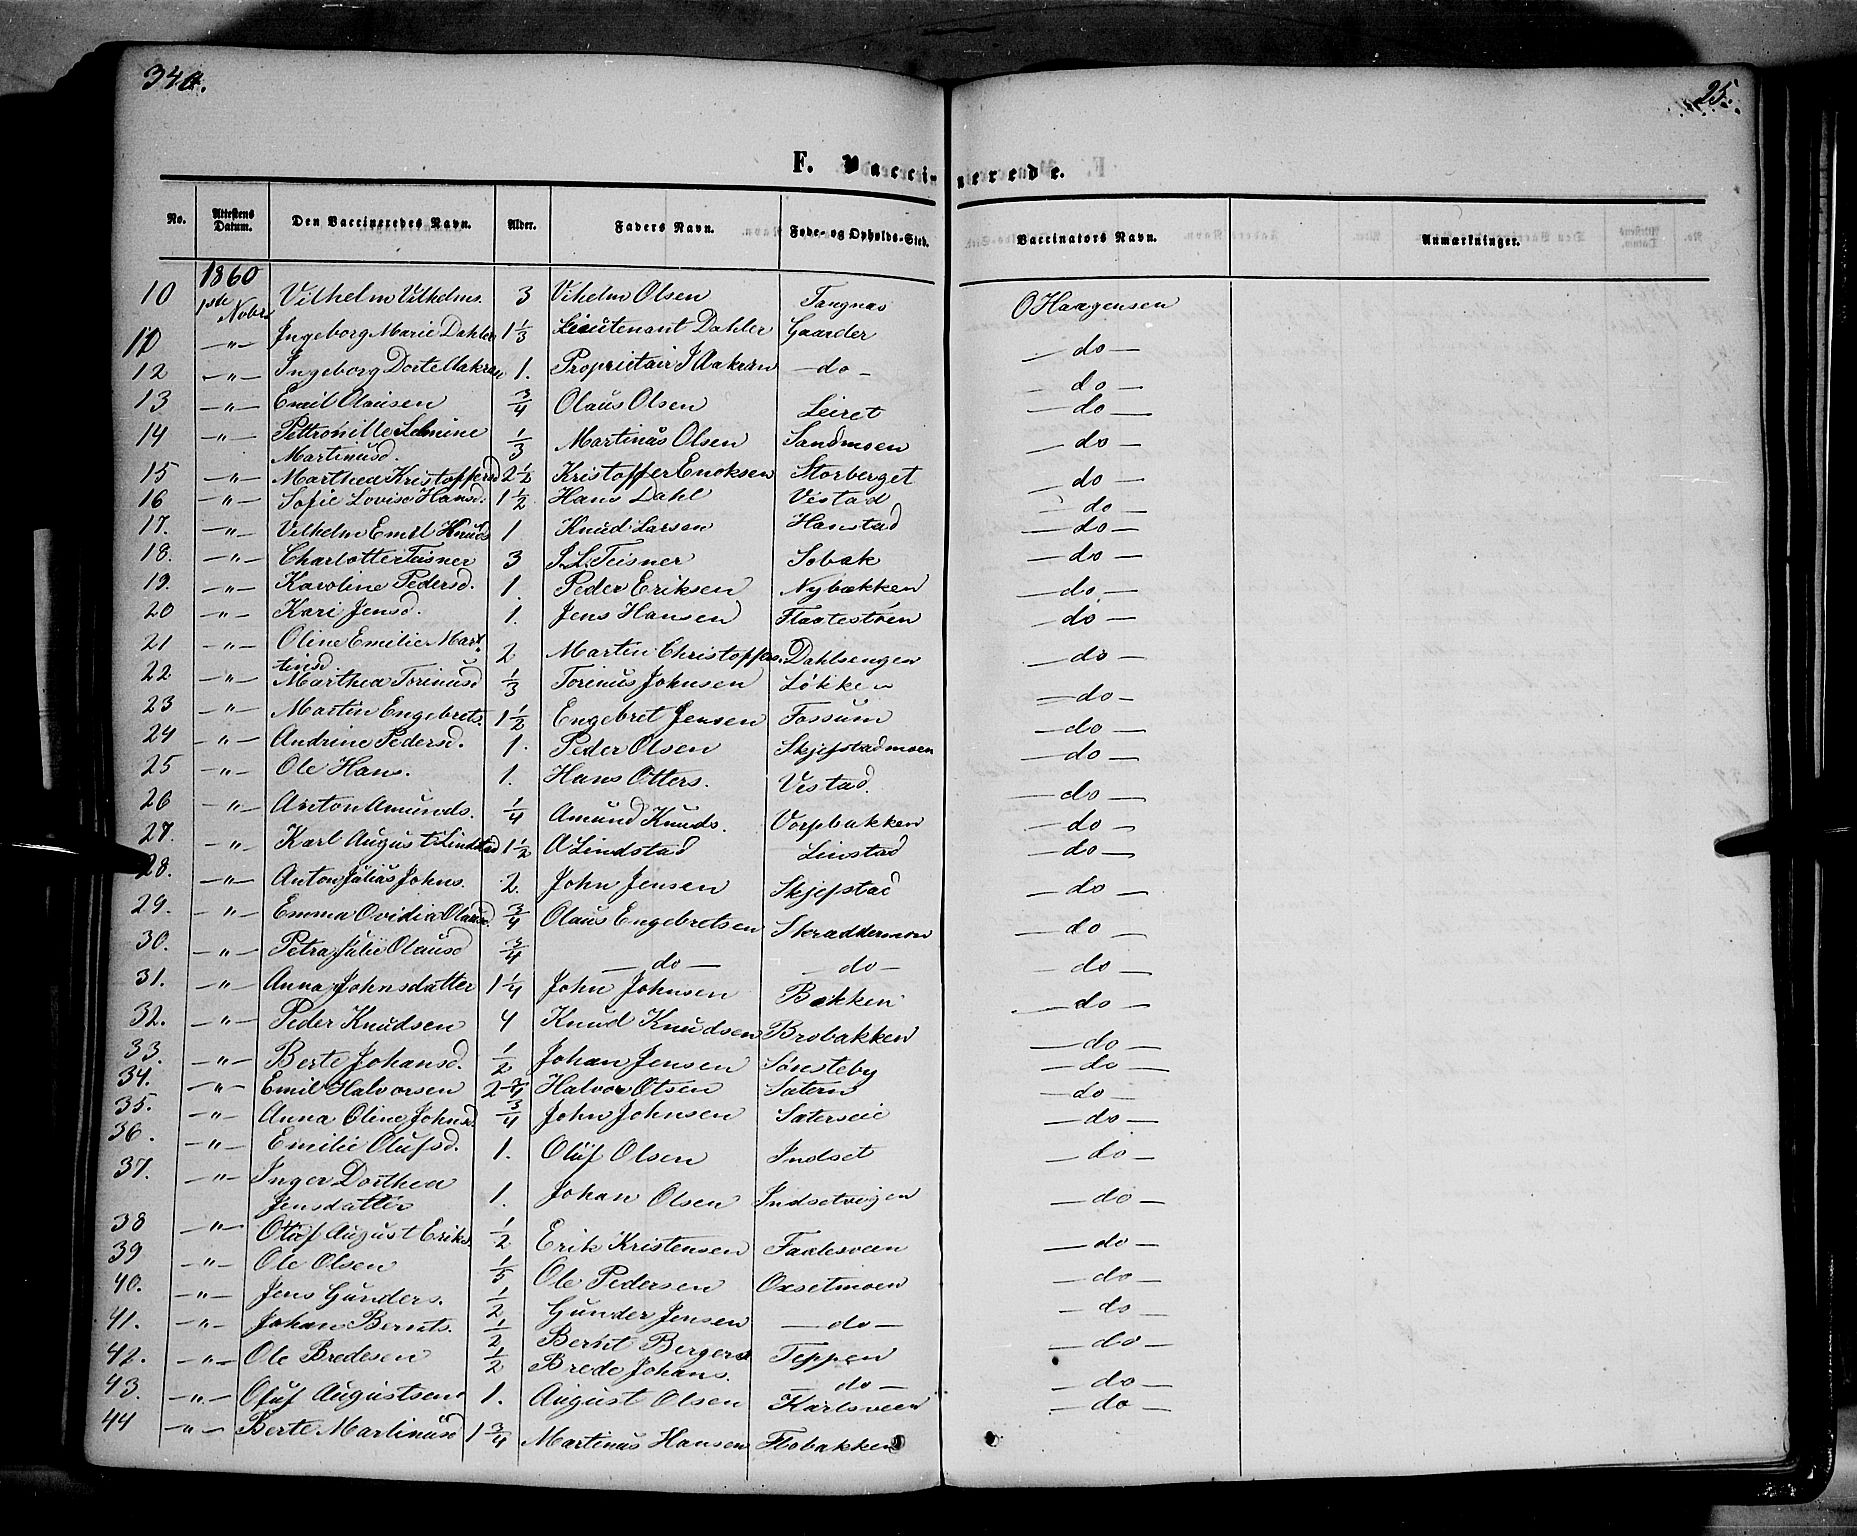 340.
25.
F. Vaccinerede.
No. Attestens Datum. Den Vaccineredes Navn. Alder. Faders Navn. Føde- og Opholds-Sted. Vaccinators Navn. Anmærkninger.
1860
10 1ste Nobr Vilhelm Vilhelms. 3 Vihelm Olsen Tangnæs O Haagensen
11 —"— Ingeborg Marie Dahler 1 1/3 Lieutenant Dahler Gaarder —do—
12 —"— Ingeborg Dorte Aakran 1. Proprietair J Aakran —do— —do—
13 —"— Emil Olausen 3/4 Olaus Olsen Leiret —do—
14 —"— Pettronille Selmine 1/3 Martinus Olsen Sandmoen —do—
Martinusd.
15 —"— Marthea Kristoffersd 2 1/2 Kristoffer Enoksen Storberget —do—
16 —"— Sofie Lovise Hansd. 1 1/2 Hans Dahl Vestad —do—
17. —"— Vilhelm Emil Knuds 1 Knud Larsen Hanstad —do—
18. —"— Charlotte Teisner 3 J. L. Teisner Sobak —do—
19. —"— Karoline Pedersd. 1. Peder Eriksen Nybækken —do—
20 —"— Kari Jensd. 1. Jens Hansen Flaatestøen —do—
21 —"— Oline Emilie Mar- 2 Martin Christoffers. Dahlsengen —do—
tinsd.
22 —"— Marthea Torinusd 1/3 Torinus Johnsen Løkken —do—
23 —"— Martin Engebrets. 1 1/2 Engebret Jensen Fossum —do—
24 —"— Andrine Pedersd. 1. Peder Olsen Skjefstadmoen —do—
25 —"— Ole Hans. 1. Hans Otters. Vestad. —do—
26 —"— Anton Amunds. 1/4 Amund Knuds. Vorpbakken —do—
27. —"— Karl August Lindstad 1 1/2 A Lindstad Linstad —do—
28. —"— Anton Julius Johns. 2. John Jensen Skjefstad —do—
29. —"— Emma Ovidia Olausd. 3/4 Olaus Engebretsen Skraddermoen —do—
30. —"— Petra Julie Olausd 3/4 —do— —do— —do—
31. —"— Anna Johnsdatter 1 1/4 John Johnsen Bakken —do—
32. —"— Peder Knudsen 4 Knud Knudsen Brobakken —do—
33. —"— Berte Johansd. 1/2 Johan Jensen Sørsteby —do—
34. —"— Emil Halvorsen 2 3/4 Halvor Olsen Satern —do—
35. —"— Anna Oline Johnsd. 3/4 John Johnsen Satereie —do—
36. —"— Emilie Olufsd. 1. Oluf Olsen Indset —do—
37. —"— Inger Dorthea 1. Johan Olsen Indsetvigen —do—
Jensdatter
38 —"— Oluf August Eriks. 1/2 Erik Kristensen Faalesveen —do—
39 —"— Ole Olsen 1/5 Ole Pedersen Oxsetmoen —do—
40. —"— Jens Gunders. 1/2 Gunder Jensen —do— —do—
41. —"— Johan Bernts. 1/2 Bernt Bergers Teppen —do—
42. —"— Ole Bredesen 1/2 Brede Johans. —do— —do—
43. —"— Oluf Augustsen 1. August Olsen Karlsveen —do—
44 —"— Berte Martinusd 1 3/4 Martinus Hansen Flobakken